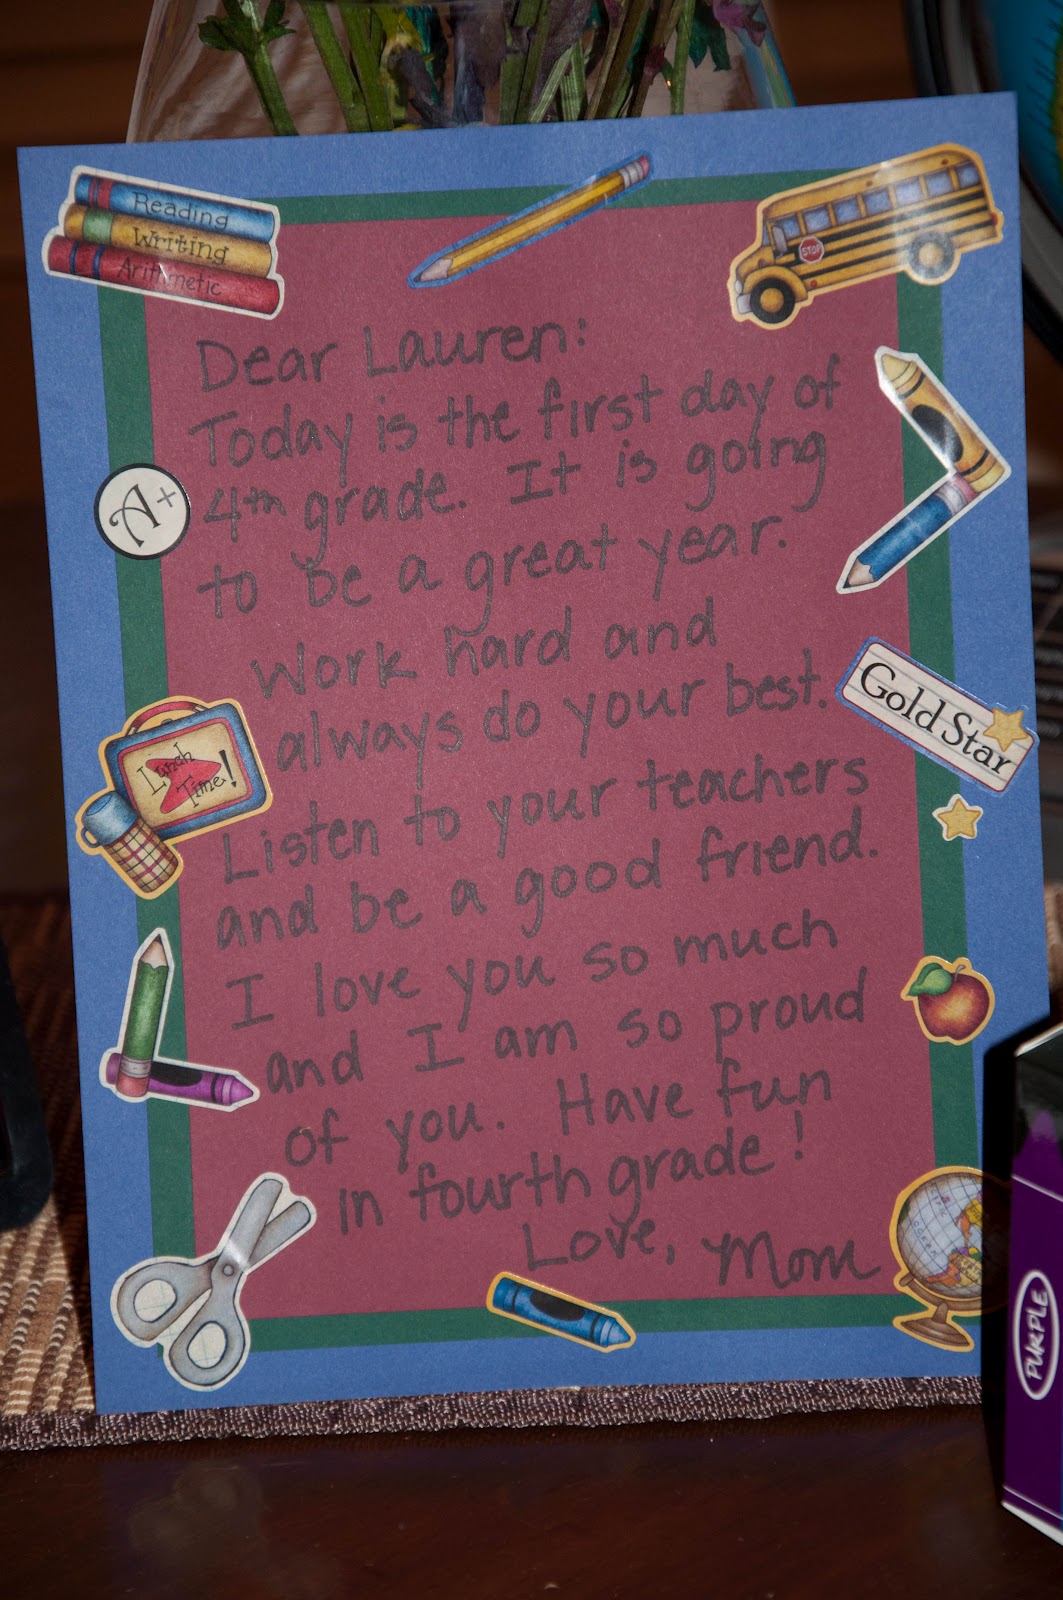 Reading
Writing
Arithmetic
STOP
Dear Lauren:
Today is the first day of
4th grade. It is going
to be a great year.
Work hard and
always do your best.
Listen to your teachers
and be a good friend.
I love you so much
and I am so proud
of you. Have fun
in fourth grade!
Love, Mom
A+
Gold Star
Lunch
Time!
OCEAN
PURPLE